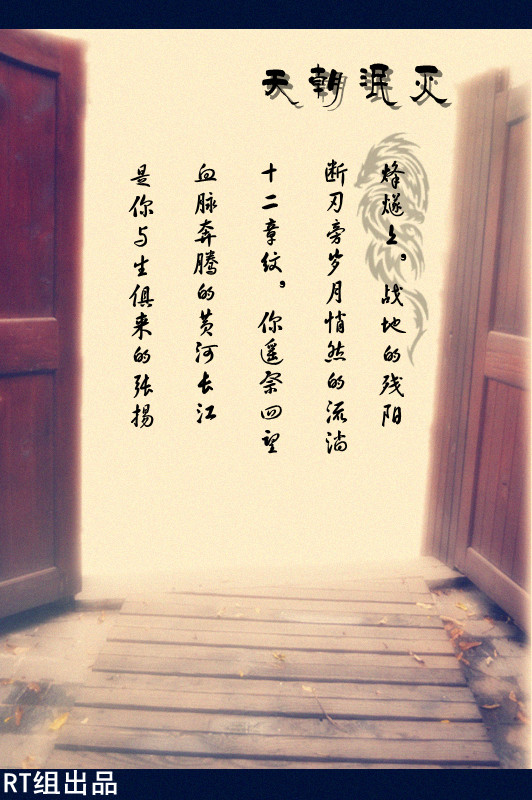 天朝泯灭
烽燧上。战地的残阳
断刃旁岁月悄然的流淌
十二章纹。你遥祭四望
血脉奔腾的黄河长江
是你与生俱来的张扬
RT组出品